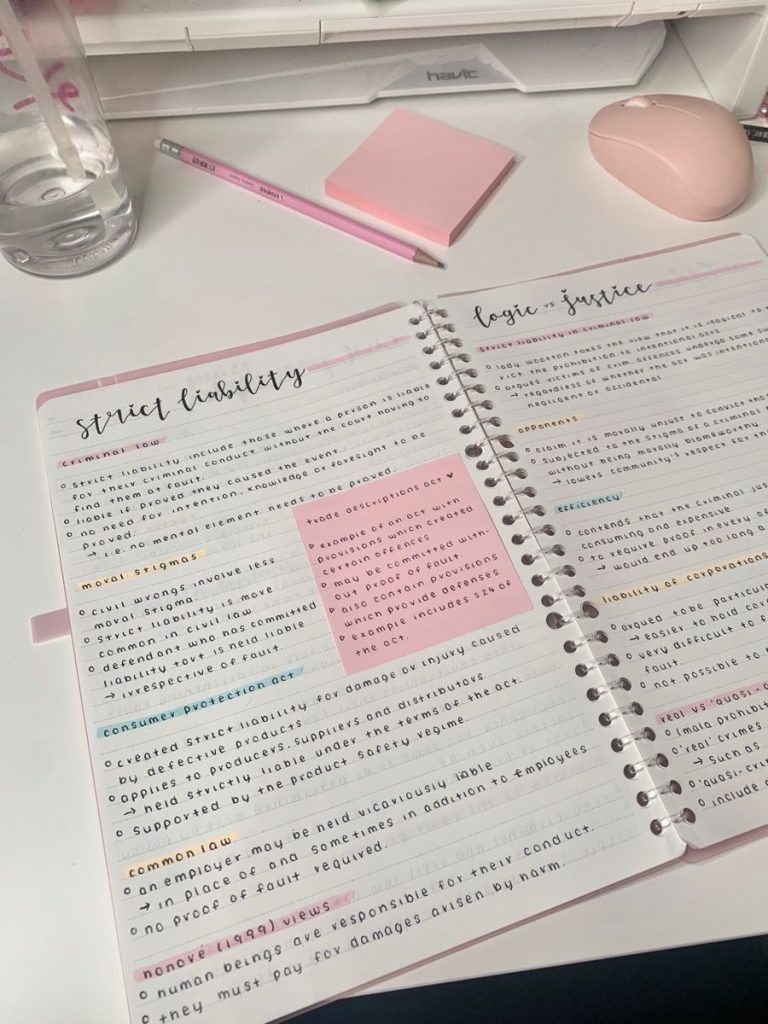 havit
strict liability
criminal law
o strict liability include those where a person is liable
for their criminal conduct without the court having to
find them at fault.
o liable if proved they caused the event
o no need for intention, knowledge or foresight to be
proved.
→ i.e. no mental element needs to be proved.
moral stigmas
o civil wrongs involve less
moral stigma.
o strict liability is more
common in civil law
o defendant who has committed
liability tort is held liable
→ irrespective of fault.
trade descriptions act ♥
example of an act with
provisions which created
certain offences
may be committed with-
out proof of fault.
also contain provisions
which provide defenses
example includes s24 of
the act.
consumer protection act
o created strict liability for damage or injury caused
by defective products
o applies to producers, suppliers and distributors
→ held strictly liable under the terms of the act.
o supported by the product safety regime.
common law
o an employer may be held vicariously liable
→ in place of and sometimes in addition to employees
o no proof of fault required.
honoré (1999) views
o human beings are responsible for their conduct.
o they must pay for damages arisen by harm.
logic vs justice
strict liability in criminal law
o lady wootton takes the view that it is illogical to
rict the prohibition to intentional acts
o argues victims of crim. offences undergo same
→ regardless of whether the act was intention
negligent or accidental
opponents
o claim it is morally unjust to convict
o subjected to the stigma of a criminal
without being morally blameworthy
→ lowers community's respect for
efficiency
o contends that the criminal jus
consuming and expensive
o to require proof in every
→ would end up too long a
liability of corporations
o argued to be particu
→ easier to hold cor
o very difficult to
fault.
o not possible to
real vs 'quasi-
o (mala prohibit
o 'real' crimes
→ such as
o 'quasi-cri
o include